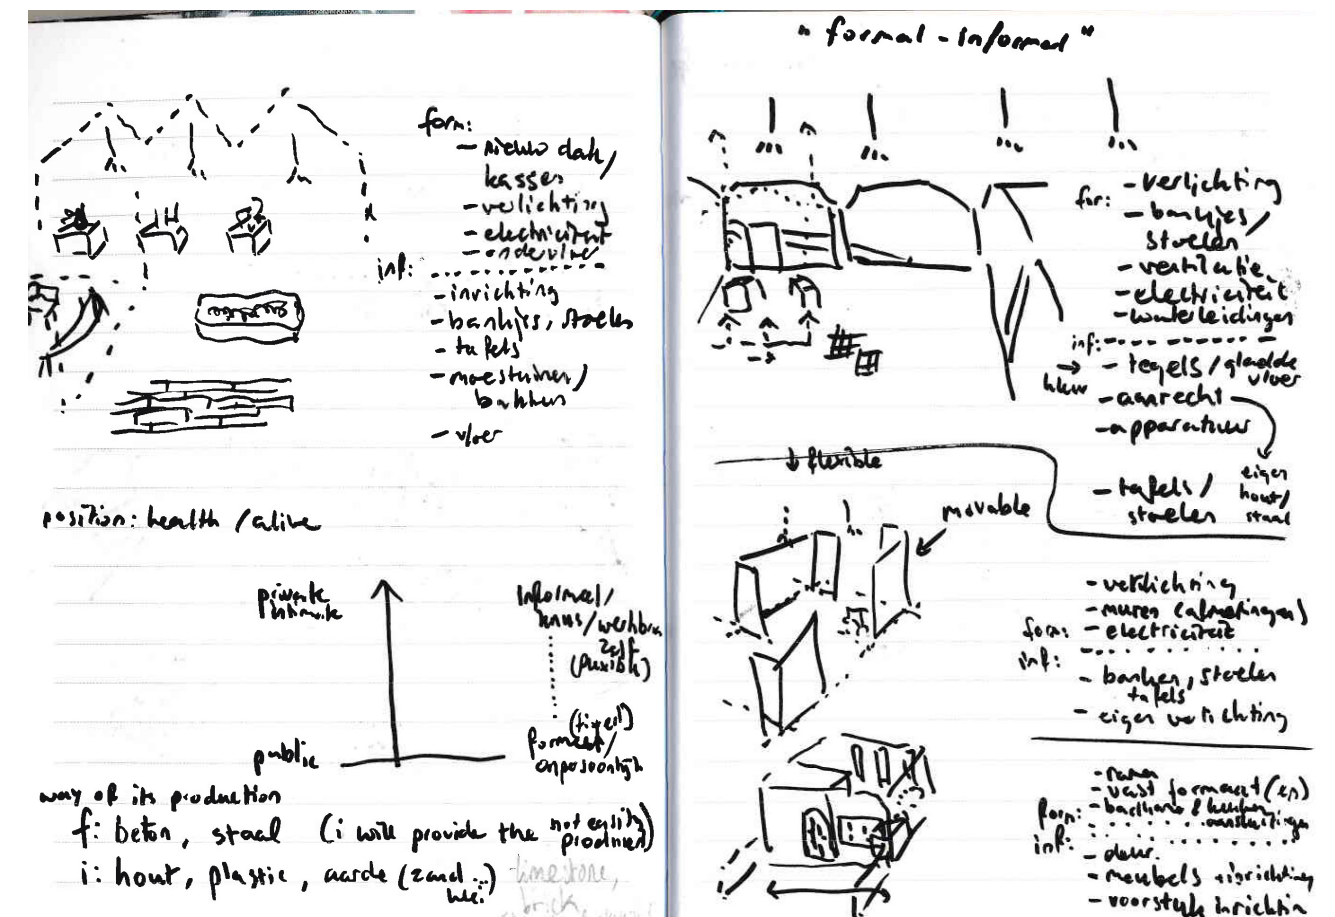 "formal - informal"
form:
- nieuw dak/
kassen
- verlichting
- electriciteit
- ondervloer
inf:
- inrichting
- bankjes, stoelen
- tafels
- moestuinen/
bakken
- vloer
position: health / alive
private
intimate
informeel/
knus/werkbaar
zelf
(flexible)
(fixed)
formeel/
onpersoonlijk
public
way of its production
f: beton, staal (i will provide the not easily produced)
i: hout, plastic, aarde (zand..
klei)
limestone,
brick,
for:
- verlichting
- bankjes/
stoelen
- ventilatie
- electriciteit
- waterleidingen
inf:
- tegels/gladde
vloer
- aanrecht
- apparatuur
eigen
hout/
staal
- tafels/
stoelen
↓ flexible
movable
- verlichting
- muren (afmetingen)
form: - electriciteit
inf:
- banken, stoelen
tafels
- eigen verlichting
- ramen
- vast formaat
form: - badkamer & keuken
aansluitingen
inf:
- deur.
- meubels + inrichting